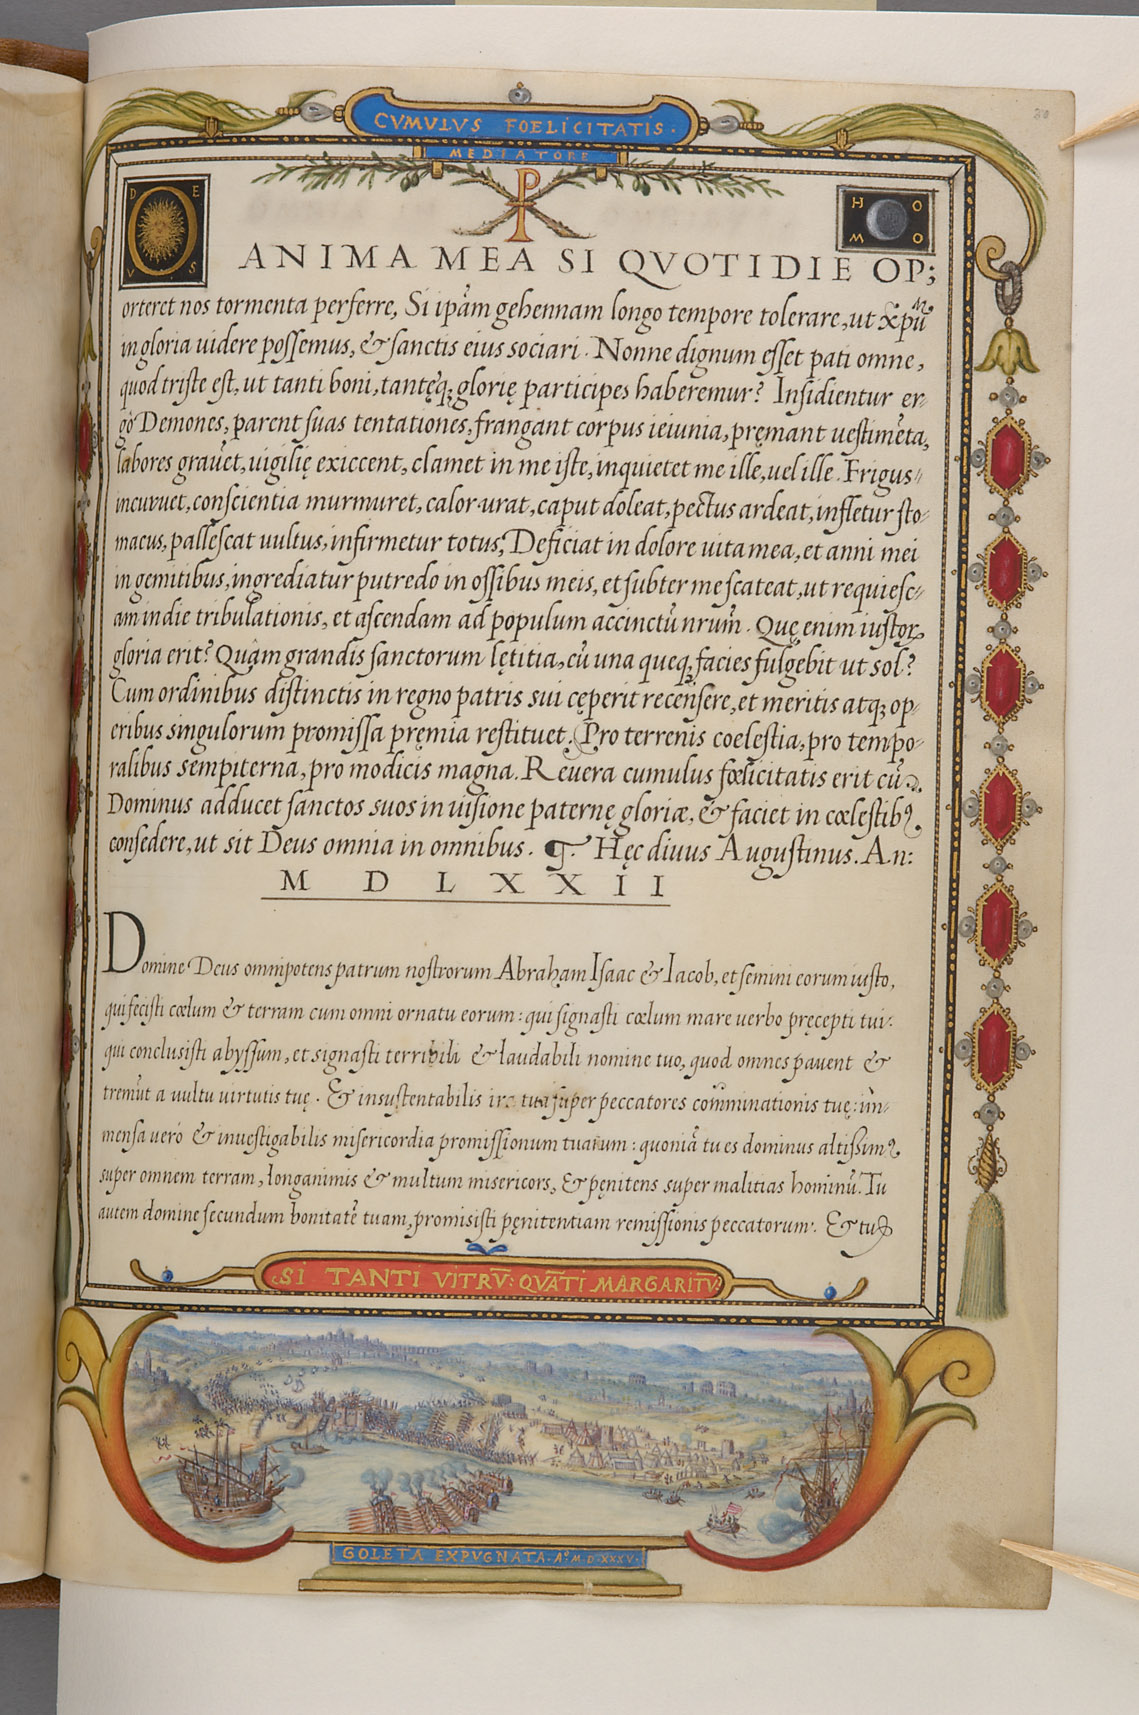 30
CVMVLVS FOELICITATIS.
MEDIATORE
DEVS
HOMO
ANIMA MEA SI QVOTIDIE OP;
orteret nos tormenta perferre, Si ipsam gehennam longo tempore tolerare, ut xp̄ū
in gloria uidere possemus, & sanctis eius sociari. Nonne dignum esset pati omne,
quod triste est, ut tanti boni, tantęq; glorię participes haberemur? Insidientur er-
gò Demones, parent suas tentationes, frangant corpus ieiunia, pręmant uestimēta,
labores grauēt, uigilię exiccent, clamet in me iste, inquietet me ille, uel ille. Frigus-
incuruet, conscientia murmuret, calor urat, caput doleat, pectus ardeat, infletur sto-
macus, pallescat uultus, infirmetur totus, Deficiat in dolore uita mea, et anni mei
in gemitibus, ingrediatur putredo in ossibus meis, et subter me scateat, ut requiesc-
am in die tribulationis, et ascendam ad populum accinctū nrum̄. Quę enim iustoꝝ
gloria erit? Quâm grandis sanctorum lętitia, cū una queq; facies fulgebit ut sol?
Cum ordinibus distinctis in regno patris sui cęperit recensere, et meritis atq; op-
eribus singulorum promissa pręmia restituet. Pro terrenis coelestia, pro tempo-
ralibus sempiterna, pro modicis magna. Reuera cumulus fœlicitatis erit cū
Dominus adducet sanctos suos in uisione paternę gloriæ, & faciet in cœlestibꝰ
consedere, ut sit Deus omnia in omnibus. ¶. Hęc diuus Augustinus. An:
M D L X X I I
Domine Deus omnipotens patrum nostrorum Abraham Isaac & Iacob, et semini eorum iusto,
qui fecisti cœlum & terram cum omni ornatu eorum: qui signasti cœlum mare uerbo pręcepti tui:
qui conclusisti abyssum, et signasti terribili & laudabili nomine tuo, quod omnes pauent &
tremūt a uultu uirtutis tuę. & insustentabilis ira tua super peccatores com̄minationis tuę: im̄-
mensa uerò & inuestigabilis misericordia promissionum tuarum: quoniā tu es dominus altissimꝰ
super omnem terram, longanimis & multum misericors, & pęnitens super malitias hominū. Tu
autem domine secundum bonitatē tuam, promisisti pęnitentiam remissionis peccatorum. & tu
SI TANTI VITRV̄: QVĀTI MARGARITV̄:
GOLETA EXPVGNATA. Aº M.D.XXXV.